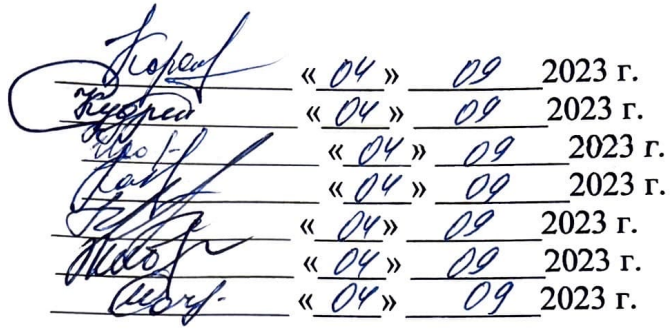 « 04 » 09 2023 г.
« 04 » 09 2023 г.
« 04 » 09 2023 г.
« 04 » 09 2023 г.
« 04 » 09 2023 г.
« 04 » 09 2023 г.
« 04 » 09 2023 г.